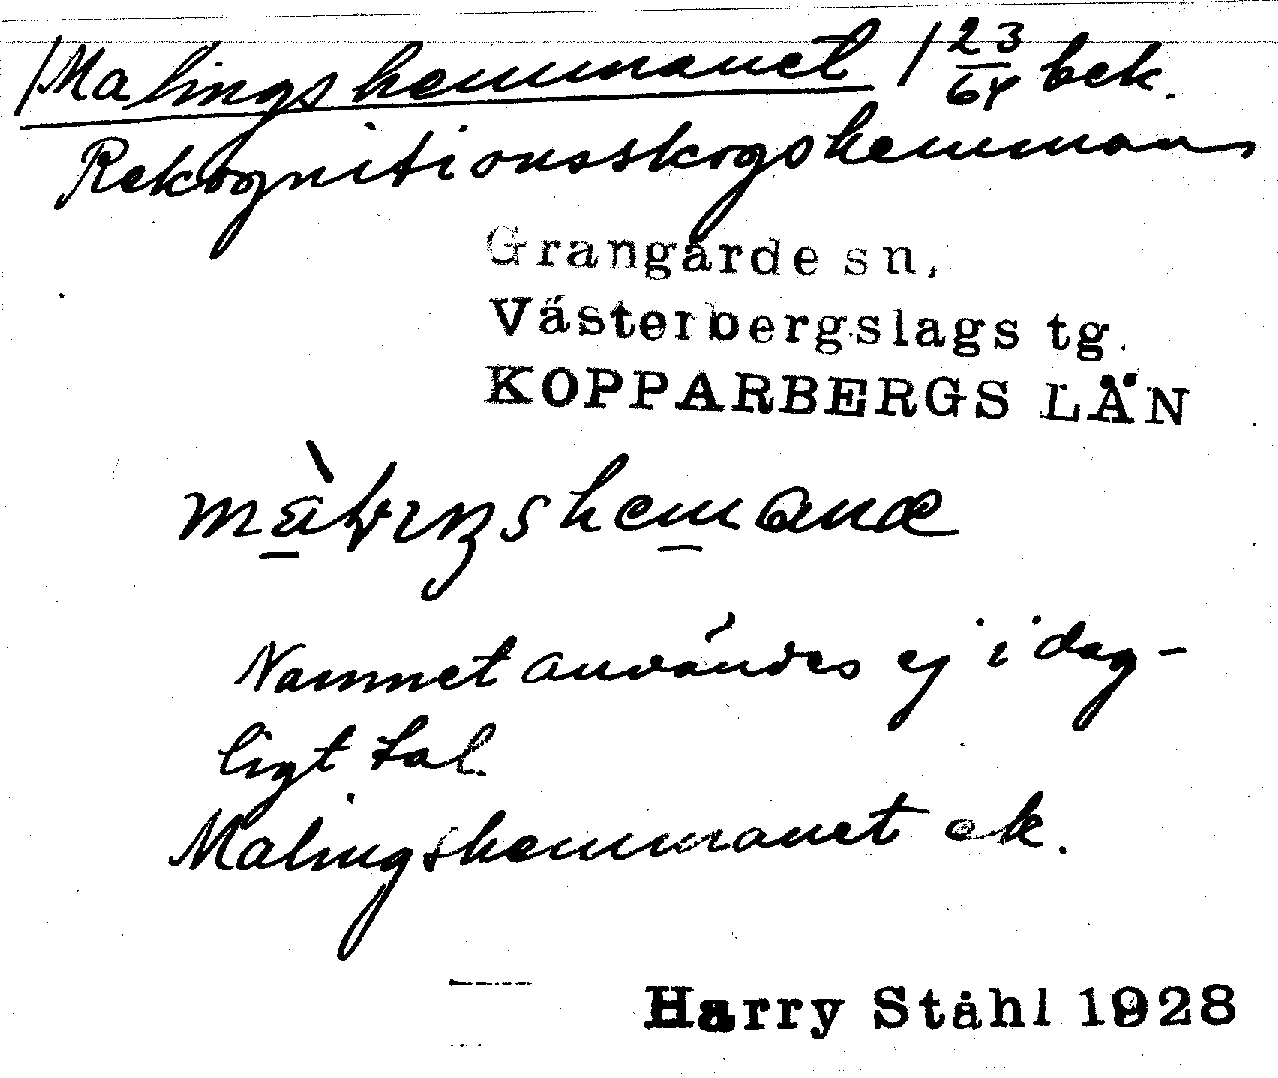 /Malingshemmanet/ 23/64 bek.
Rekognitionsskogshemman
Grangärde sn,
Västerbergslags tg.
KOPPARBERGS LÄN
Namnet användes ej i dag-
ligt tal.
Malingshemmanet ek.
Harry Ståhl 1928